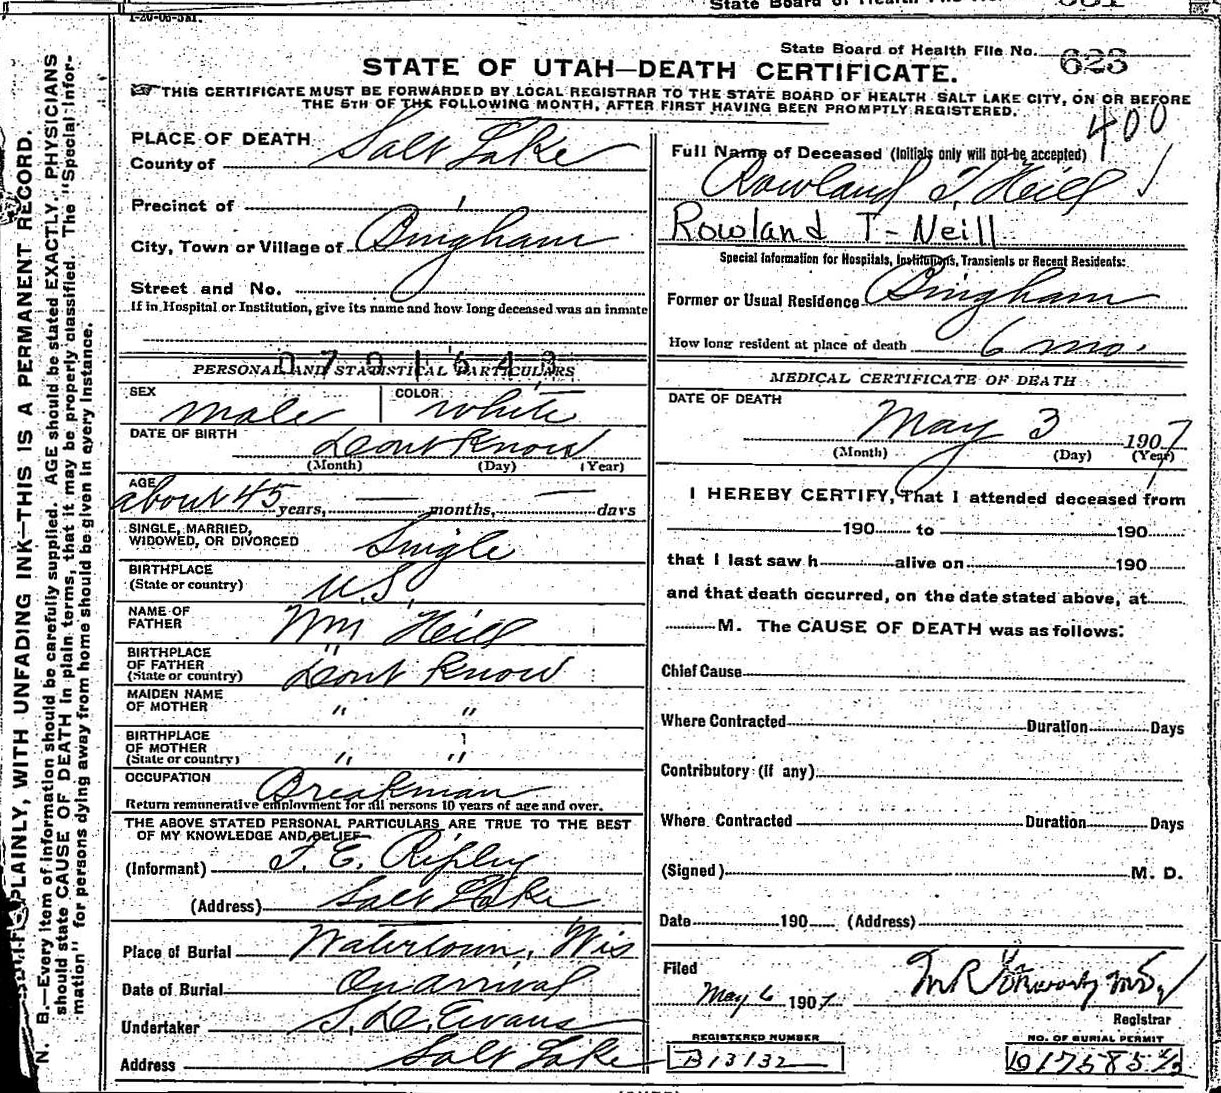 1-20-06-5M.
State Board of Health File No. 623
STATE OF UTAH—DEATH CERTIFICATE.
THIS CERTIFICATE MUST BE FORWARDED BY LOCAL REGISTRAR TO THE STATE BOARD OF HEALTH SALT LAKE CITY, ON OR BEFORE
THE 5TH OF THE FOLLOWING MONTH, AFTER FIRST HAVING BEEN PROMPTLY REGISTERED.
400
PLAINLY, WITH UNFADING INK—THIS IS A PERMANENT RECORD.
N. B.—Every item of information should be carefully supplied. AGE should be stated EXACTLY. PHYSICIANS
should state CAUSE OF DEATH in plain terms, that it may be properly classified. The "Special Infor-
mation" for persons dying away from home should be given in every instance.
PLACE OF DEATH
County of Salt Lake
Precinct of
City, Town or Village of Bingham
Street and No.
If in Hospital or Institution, give its name and how long deceased was an inmate
PERSONAL AND STATISTICAL PARTICULARS
SEX male COLOR white
DATE OF BIRTH Dont Know
(Month) (Day) (Year)
AGE about 45 years, — months, — days
SINGLE, MARRIED,
WIDOWED, OR DIVORCED Single
BIRTHPLACE
(State or country) U.S.
NAME OF
FATHER Wm Neill
BIRTHPLACE
OF FATHER
(State or country) Dont Know
MAIDEN NAME
OF MOTHER " "
BIRTHPLACE
OF MOTHER
(State or country) " "
OCCUPATION Breakman
Return remunerative employment for all persons 10 years of age and over.
THE ABOVE STATED PERSONAL PARTICULARS ARE TRUE TO THE BEST
OF MY KNOWLEDGE AND BELIEF
(Informant) T. E. Ripley
(Address) Salt Lake
Place of Burial Watertown, Wis
Date of Burial On arrival
Undertaker S. D. Evans
Address Salt Lake
Full Name of Deceased (Initials only will not be accepted)
Rowland T. Neill
Rowland T- Neill
Special Information for Hospitals, Institutions, Transients or Recent Residents:
Former or Usual Residence Bingham
How long resident at place of death 6 mo.
MEDICAL CERTIFICATE OF DEATH
DATE OF DEATH
May 3 1907
(Month) (Day) (Year)
I HEREBY CERTIFY, That I attended deceased from
190 to 190
that I last saw h alive on 190
and that death occurred, on the date stated above, at
M. The CAUSE OF DEATH was as follows:
Chief Cause
Where Contracted Duration Days
Contributory (if any)
Where Contracted Duration Days
(Signed) M. D.
Date 190 (Address)
Filed
May 6 1907
Registrar
REGISTERED NUMBER
B13132
NO. OF BURIAL PERMIT